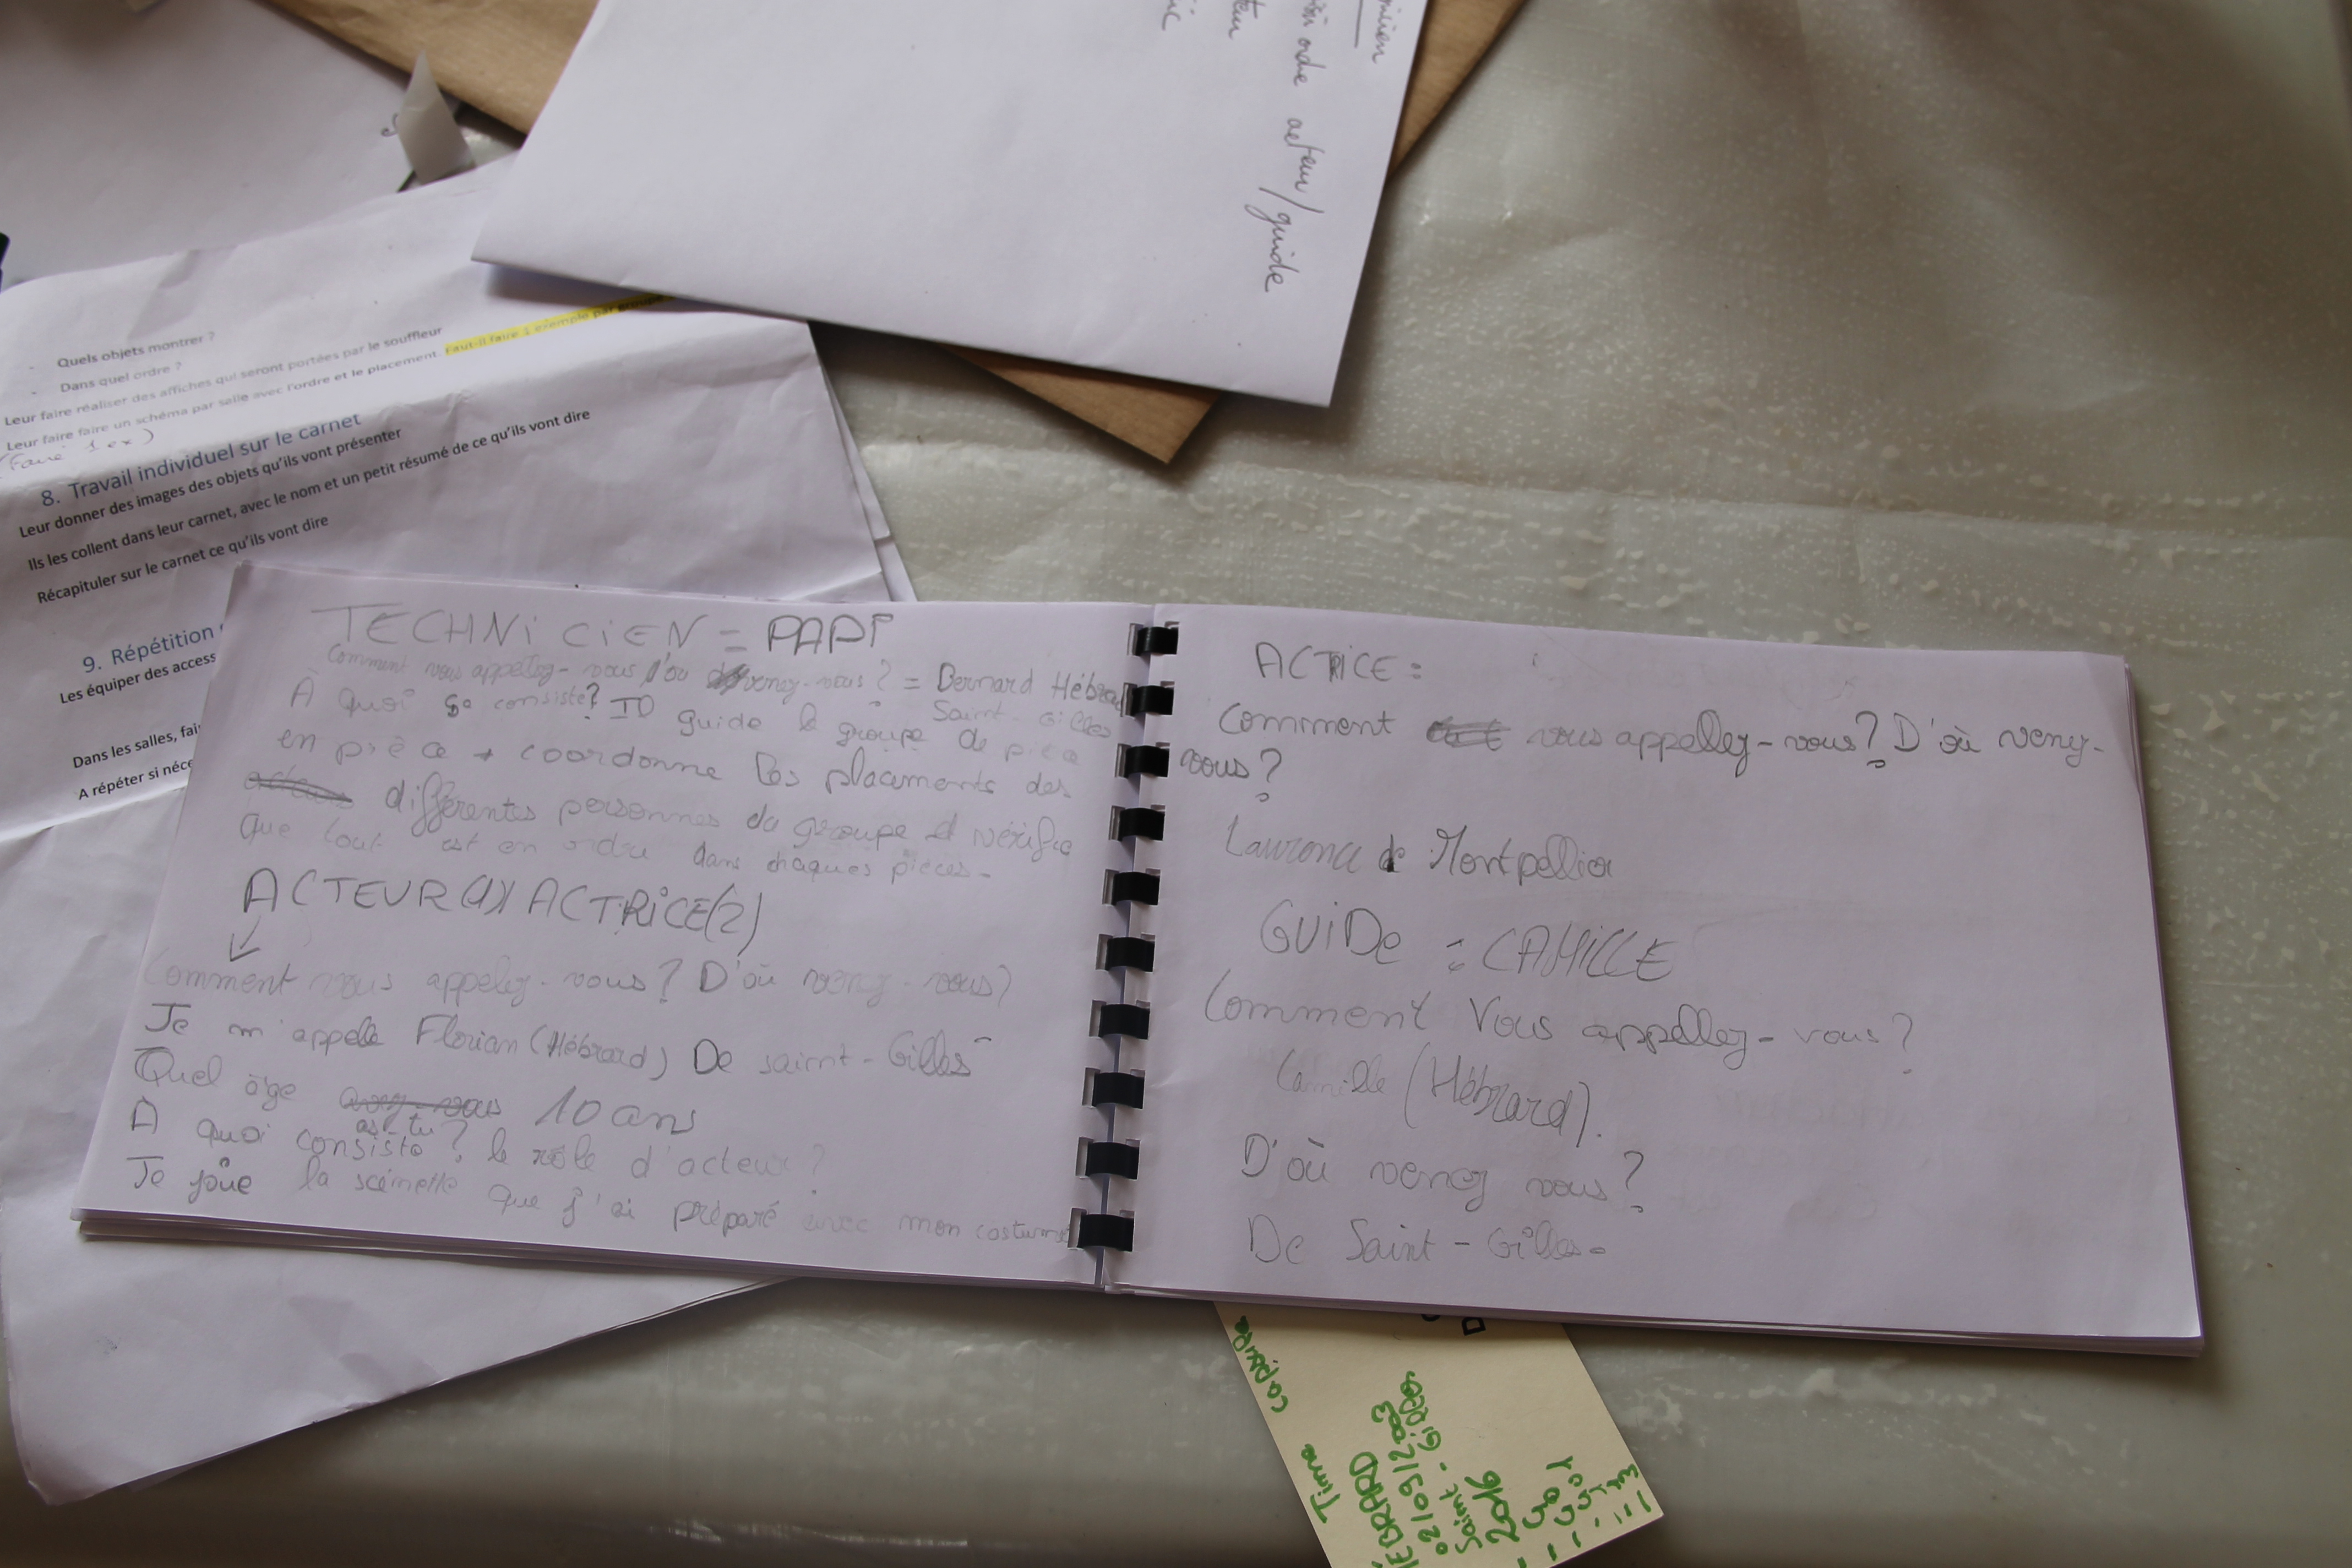 ordre acteur/guide
Quels objets montrer ?
Dans quel ordre ?
Leur faire réaliser des affiches qui seront portées par le souffleur
Leur faire faire un schéma par salle avec l'ordre et le placement. Faut-il faire 1 exemple par groupe
8. Travail individuel sur le carnet
Leur donner des images des objets qu'ils vont présenter
Ils les collent dans leur carnet, avec le nom et un petit résumé de ce qu'ils vont dire
Récapituler sur le carnet ce qu'ils vont dire
9. Répétition
Les équiper des access
Dans les salles, fai
A répéter si néce
TECHNiCiEN = PAPi
Comment vous appelez-vous d'où venez-vous ? = Bernard Hébra
Saint-Gilles
À quoi consiste? guide le groupe de pièce
en pièce + coordonne les placements des
différentes personnes du groupe et vérifie
que tout est en ordre dans chaques pièces-
ACTEUR(1)/ACTRiCE(2)
Comment vous appelez-vous? D'où venez-vous?
Je m'appelle Florian (Hébrard) De saint-Gilles
Quel âge 10 ans
as-tu?
À quoi consiste? le rôle d'acteur?
Je joue la scénette que j'ai préparé avec mon costume
ACTRiCE :
Comment vous appellez-vous? D'où venez-
vous?
Laurence de Montpellier
GUiDe : CAMiLLE
Comment Vous appellez-vous?
Camille (Hébrard).
D'où venez vous?
De Saint-Gilles-
HÉBRARD
02/09/2003
Saint-GiRons
2016